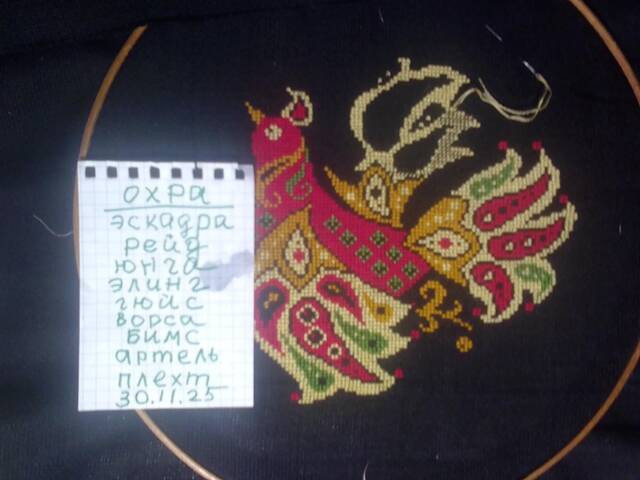 охра
эскадра
рейд
юнга
элинг
гюйс
ворса
бимс
артель
плехт
30.11.25